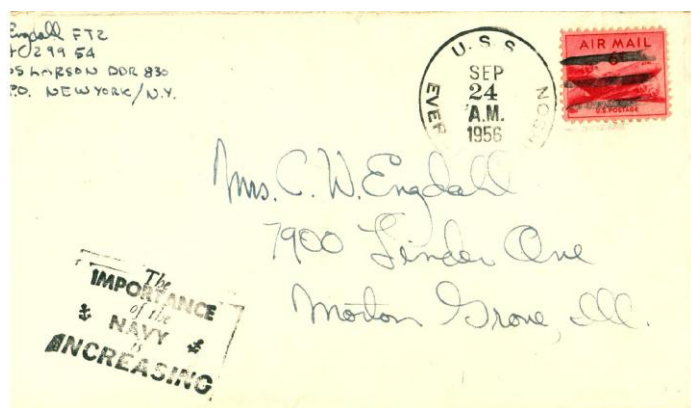 Engdall FT2
299 54
LARSON DDR 830
P.O. NEW YORK/N.Y.
U.S.S.
EVER
SON
SEP
24
A.M.
1956
AIR MAIL
6¢
U.S. POSTAGE
Mrs. C. W. Engdahl
7900 Linder Ave
Morton Grove, Ill.
The
IMPORTANCE
of the
NAVY
is
INCREASING